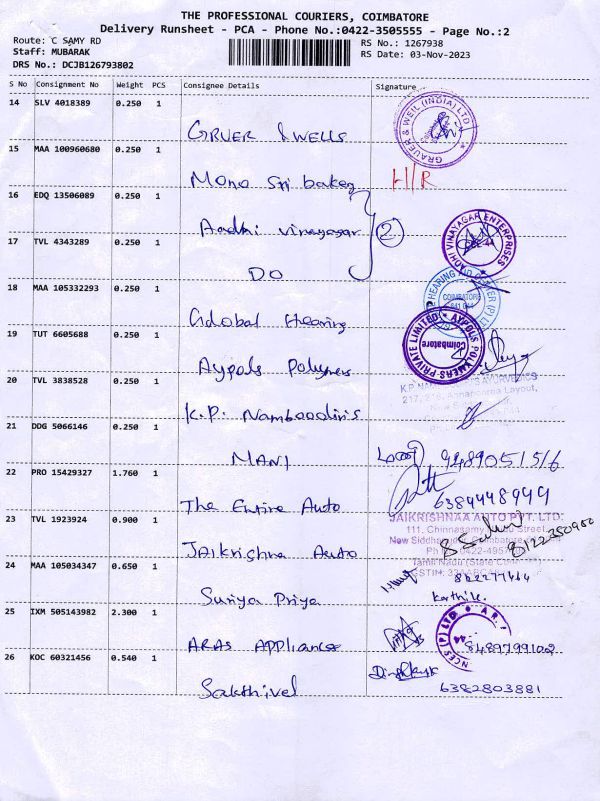 THE PROFESSIONAL COURIERS, COIMBATORE
Delivery Runsheet - PCA - Phone No.:0422-3505555 - Page No.:2
Route: C SAMY RD
Staff: MUBARAK
DRS No.: DCJB126793802
RS No.: 1267938
RS Date: 03-Nov-2023
S No Consignment No Weight PCS Consignee Details Signature
14 SLV 4018389 0.250 1
GRUER & WELLS
GRAUER & WEIL (INDIA) LTD
15 MAA 100960680 0.250 1
Mono Sri bakery H/R
16 EDQ 13506089 0.250 1
Aadhi Vinayagar 2
ADHI VINAYAGAR ENTERPRISES
17 TVL 4343289 0.250 1
DO
HEARING AID (P) LTD
COIMBATORE
641 044
18 MAA 105332293 0.250 1
Global Hearing
AYPOLS POLYMERS PRIVATE LIMITED
Coimbatore
19 TUT 6605688 0.250 1
Aypols Polymers
K.P. AYURVEDICS
217, 218, Annapoorna Layout,
20 TVL 3838528 0.250 1
K.P. Namboodiris
21 DDG 5066146 0.250 1
MANI 9489051516
22 PRO 15429327 1.760 1
The Entire Auto 6389448949
JAIKRISHNAA AUTO PVT. LTD.
111, Chinnasamy Street,
23 TVL 1923924 0.900 1
New Coimbatore
JAIkrishna Auto 8122350950
Tamil Nadu (State
24 MAA 105034347 0.650 1
Suriya Priya
Karthik.
25 IXM 505143982 2.300 1
ARAS Appliances 8489799102
26 KOC 60321456 0.540 1
Sakthivel 6382803881